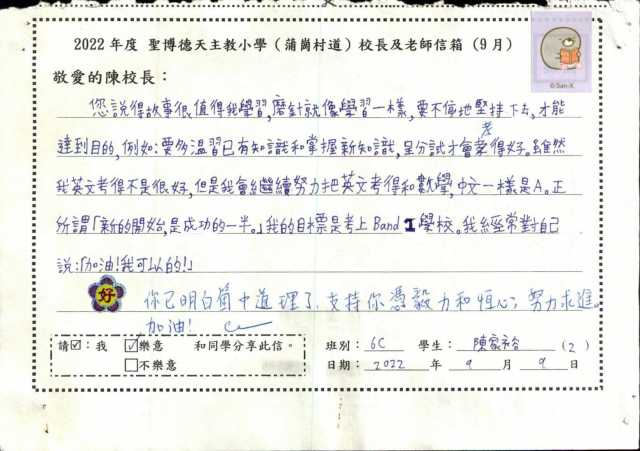 2022 年度 聖博德天主教小學（蒲崗村道）校長及老師信箱（9 月）
敬愛的陳校長：
您說得故事很值得我學習，磨針就像學習一樣，要不停地堅持下去，才能
達到目的，例如：要多溫習已有知識和掌握新知識，呈分試才會考得好。雖然
我英文考得不是很好，但是我會繼續努力把英文考得和數學，中文一樣是A。正
所謂「新的開始，是成功的一半。」我的目標是考上 Band 1 學校。我經常對自己
說：「加油！我可以的！」
好
你已明白箇中道理了，支持你憑毅力和恒心，努力求進。
加油！
請☑：我 ☑樂意 和同學分享此信。
□不樂意
班別： 6C 學生： 陳家裕 (2)
日期： 2022 年 9 月 9 日
©San-X